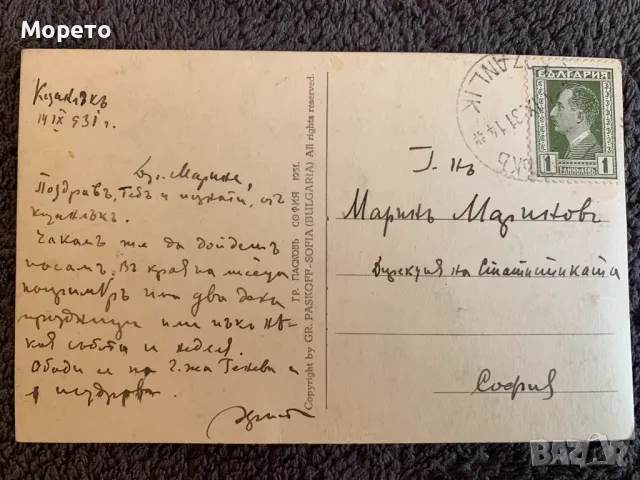 Морето
Казанлъкъ
14 IX 931 г.
Поздравъ, Тебъ и познати, отъ
Казанлъкъ.
Чакамъ же да дойдешъ
насамъ. Въ края на месеца
например на два дни
празници или пъкъ ня-
коя събота и неделя.
Обади се на г-жа Генева и
я поздрави.
ГР. ПАСКОВЪ СОФИЯ 1931.
Copyright by GR. PASKOFF-SOFIA (BULGARIA) All rights reserved.
KAZANLIK
31 14
БЪЛГАРИЯ
1 1
Г. нъ
Маринъ Мариновъ
Дирекция на Статистиката
София
BAZAR